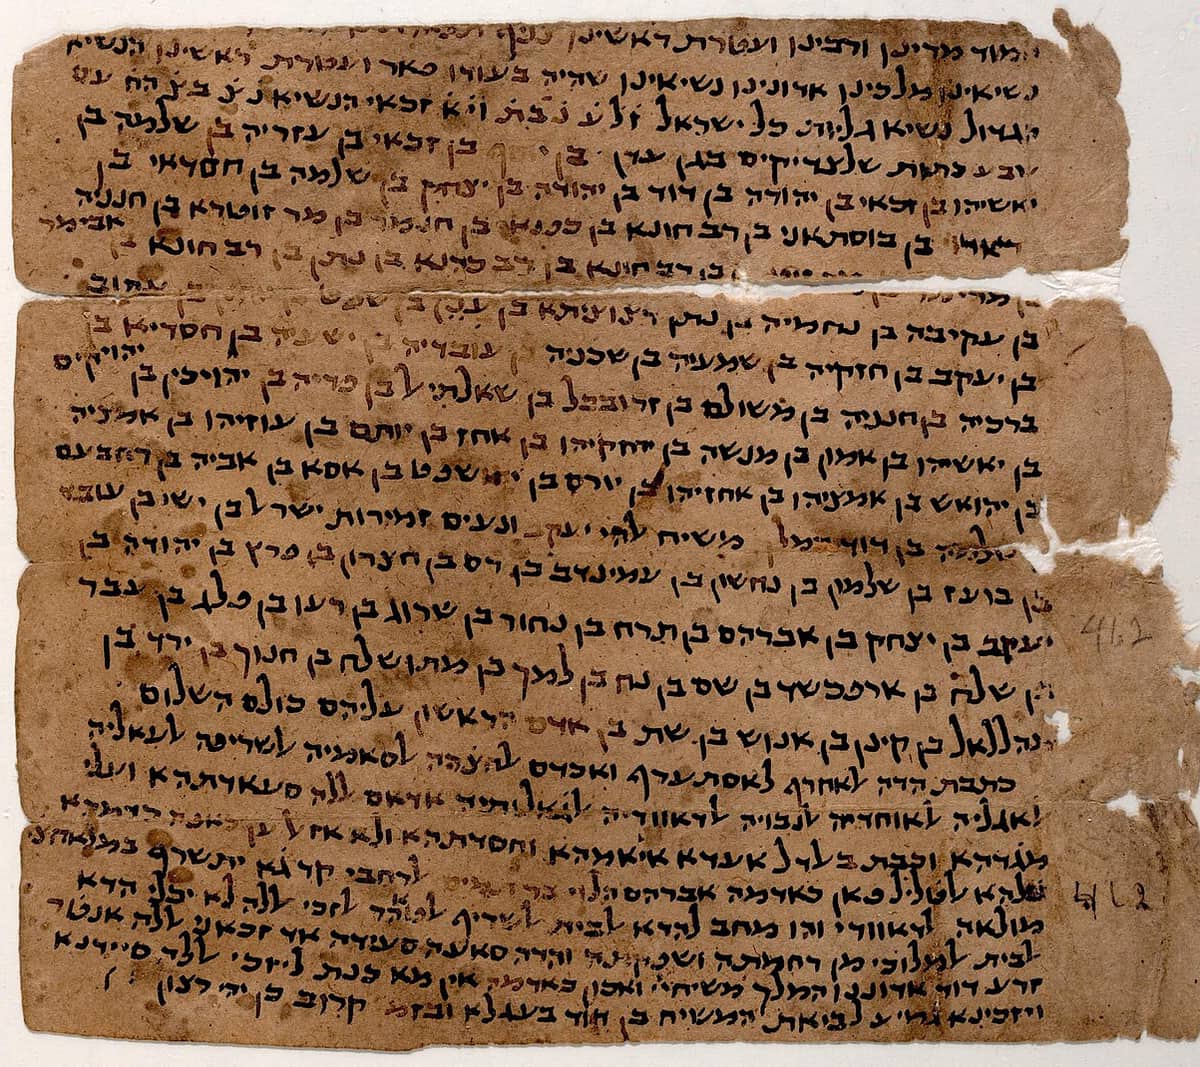 חמוד מרינן ורבינן ועטרת ראשינו
נשיאינו מלכינן אדונינו נשיאינן שהיה בעודו פאר ועטרת ראשינו הנשיא
הגדול נשיא גליות כל ישראל זל ע נ בת ויא זכאי הנשיא נצ בצ הח עם
שבע כתות שלצדיקים בגן עדן בן בן זכאי בן עזריה בן שלמה בן
יאשיהו בן זכאי בן יהודה בן דוד בן יהודה בן יצחק בן שלמה בן חסדאי בן
בן בוסתנאי בן רב חונא בן כפנאי בן חנמר בן מר זוטרא בן חנניה
בן רב חונא בן רב כהנא בן נתן בן רב חונא בן אבימר
בן מרימר
בן עקיבה בן נחמיה בן נתן דצוציתא בן ענן בן שפט בן בן ענוב
בן יעקב בן חזקיה בן שמעיה בן שכניה בן עובדיה בן ישעיה בן חסדיא בן
ברכיה בן חנניה בן משולם בן זרובבל בן שאלתיאל בן פדיה בן יהויכין בן יהויקים
בן יאשיהו בן אמון בן מנשה בן יחזקיהו בן אחז בן יותם בן עוזיהו בן אמציה
בן יהואש בן אמציהו בן אחזיהו בן יורם בן יהושפט בן אסא בן אביה בן רחבעם
שלמה בן דוד המלך משיח אלהי יעקב ונעים זמירות ישראל בן ישי בן עובד
בן בועז בן שלמון בן נחשון בן עמינדב בן רם בן חצרון בן פרץ בן יהודה בן
יעקב בן יצחק בן אברהם בן תרח בן נחור בן שרוג בן רעו בן פלג בן עבר
בן שלח בן ארפכשד בן שם בן נח בן למך בן מתושלח בן חנוך בן ירד בן
מהללאל בן קינן בן אנוש בן שת בן אדם הראשון עליהם כולם השלום
כתבת הדה אלאחרף לאסתערף ואכדם אלחצרה אלסאמיה אלשריפה אלעאליה
אלאגליה אלאוחדיה אלנבויה אלדאוודיה אדאם אללה סעאדתהא ועלי
מגדהא וכבת בעדל אעדא איאמהא וחסדתהא ולא אזאל ען
אברהם הלוי אלרחבי קד גא יתשרף במלאחצ
מולאה אלדאוודי והו מחב להדא אלבית אלשריף אלטאהר אלזכי אללה לא יכלי הדא
אלבית אלמלוכי מן רחמתה ושכינתה והדה סאעה סעידה אד זכאני אללה אנטר
זרע דוד אדוננו המלך משיחיי ואכון כאדמה אין מא כנת ליזכי אללה סיידנא
ויזכינא גמיע לביאת המשיח בן דוד בעגלא ובזמן קרוב כן יהי רצון